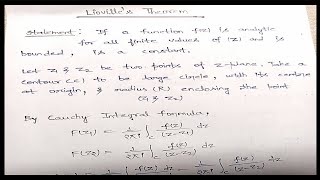 Liouville's Theorem
Statement: If a function f(z) is analytic
for all finite values of |z| and is
bounded, is a constant.
Let z₁ & z₂ be two points of z-plane. Take a
contour (c) to be large circle, with its centre
at origin, & radius (R) enclosing the point
(z₁ & z₂)
By Cauchy Integral formula,
F(z₁) = 1/2πi ∫c f(z)/(z-z₁) dz
F(z₂) = 1/2πi ∫c f(z)/(z-z₂) dz